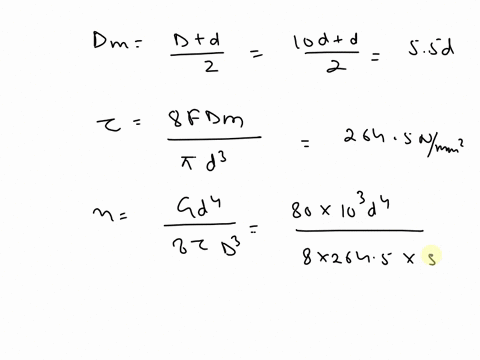 Dm = D+d/2 = 10d+d/2 = 5.5d
τ = 8FDm/πd³ = 264.5 N/mm²
n = Gd⁴/8τD³ = 80 × 10³d⁴/8×264.5 × 5